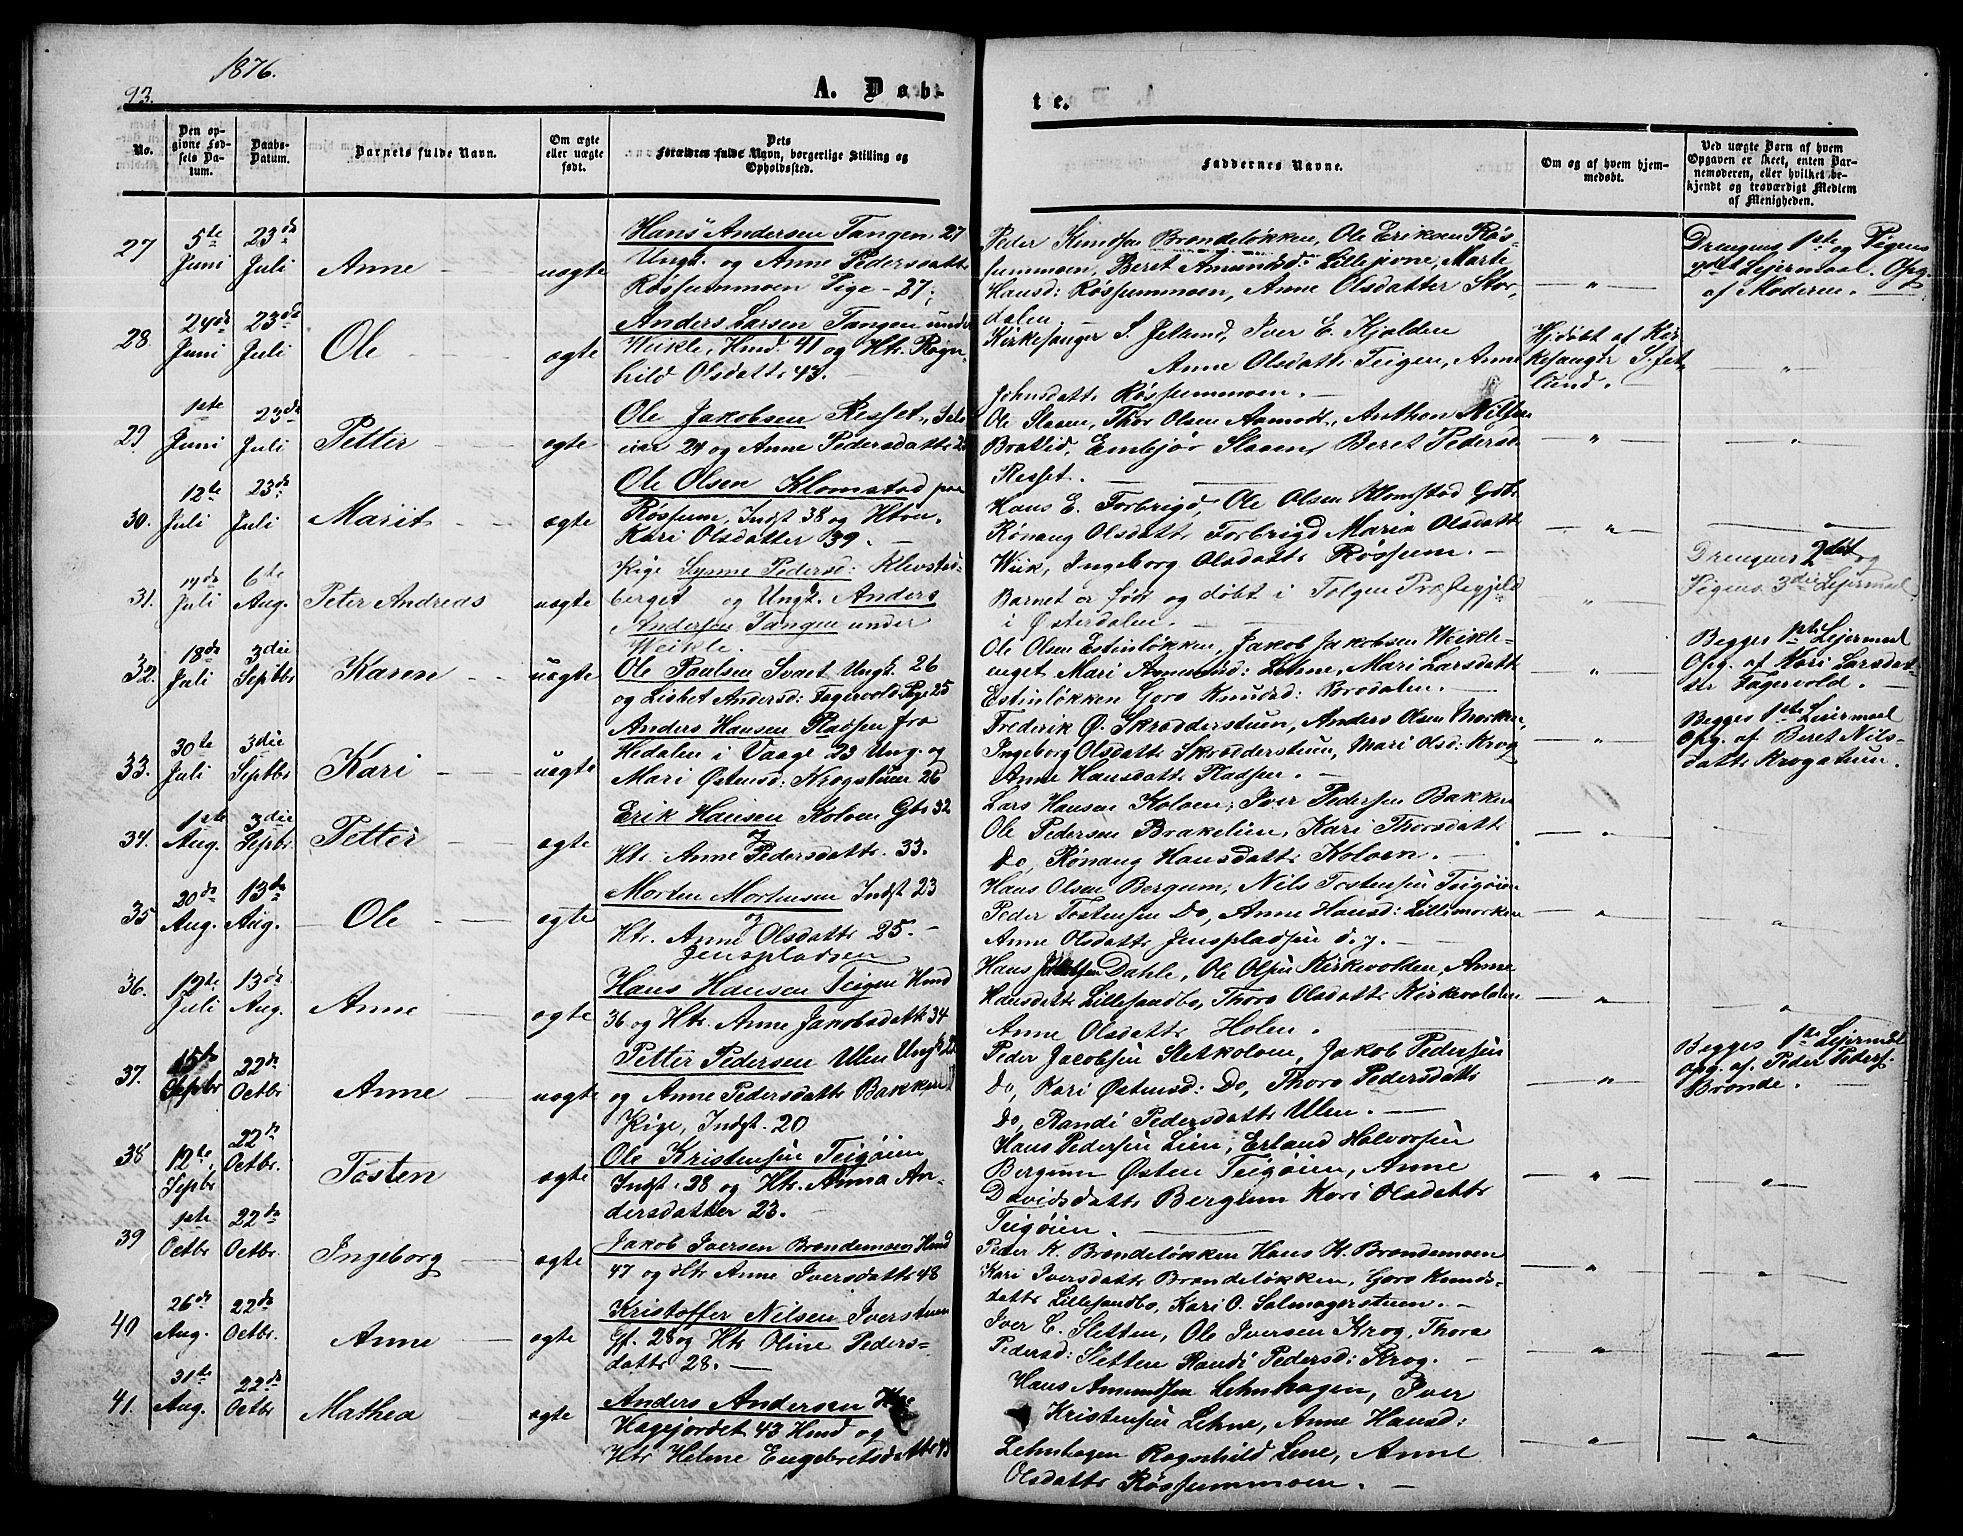 1876.
93.
A. Døb-
te.
No.
Den op-
givne Fød-
sels Da-
tum.
Daabs-
Datum.
Barnets fulde Navn.
Om ægte
eller uægte
født.
Dets
Forældres fulde Navn, borgerlige Stilling og
Opholdssted.
Faddernes Navne.
Om og af hvem hjem-
medøbt.
Ved uægte Børn af hvem
Opgaven er skeet, enten Bar-
nemoderen, eller hvilket be-
kjendt og troværdigt Medlem
af Menigheden.
27 5te Juni 23de Juli Anne uægte
Hans Andersen Tangen 27
Ungk. og Anne Pedersdatt
Røssummoen Pige - 27;
Peder Knudsen Brændeløkken, Ole Eriksen Røs-
summoen, Beret Amundsd: Lillekone, Marte
Hansd: Røssummoen, Anne Olsdatter Stor-
dalen.
Drengens 1ste og Pigens
2det Leiermaal. Opg.
af Moderen.
28. 24de Juni 23de Juli Ole ægte
Anders Larsen Tangen under
Weikle, Hmd. 41 og Htr. Rogn-
hild Olsdattr 43.
Kirkesanger S. Jetlund, Iver E. Kjolden
Anne Olsdattr Teigen, Anne
Johnsdattr Røssummoen.
Hj.døbt af Kir-
kesanger S. Jet-
lund.
29 1ste Juni 23de Juli Petter ægte
Ole Jakobsen Resset, Sel-
eier 24 og Anne Pedersdattr
Ole Slaaen, Thor Olsen Aamodt, Anthon Nilsen
Bratlid, Embjør Slaaen, Beret Pedersd
Resset.
30. 12te Juli 23de Juli Marit ægte
Ole Olsen Klomstad paa
Røssum, Indst 38 og Htru.
Kari Olsdatter 39.
Hans E. Forbrigd, Ole Olsen Klomstad Gdbr
Rønaug Olsdattr Forbrigd Maria Olsdattr
Wiik, Ingeborg Olsdattr Røssum.
31. Juli 6te Aug. Peter Andreas uægte
Pige Synne Pedersd: Klevstad-
berget og Ungk. Anders
Andersen Tangen under
Weikle.
Barnet er født og døbt i Tolgen Præstegjeld
i Østerdalen.
Drengens 2det og
Pigens 3die Leiermaal
32. 18de Juli 3die Septbr Karen uægte
Ole Paulsen Svaet Ungk. 26
og Lisbet Andersd: Fagervold Pige 25
Ole Olsen Estinløkken, Jakob Jakobsen Weikle-
enget Mari Amundsd: Lehne, Mari Larsdattr
Estinløkken Goro Knudsd: Brodalen.
Begges 1ste Leiermaal
Opg. af Kari Larsdat-
ter Fagervold.
33. 30te Juli 3die Septbr Kari uægte
Anders Hansen Pladsen fra
Hedalen i Vaage 23 Ung. og
Mari Østensd: Krogstuen 26
Frederik Ø. Skrædderstuen, Anders Olsen Morken
Ingeborg Olsdattr Skrædderstuen, Mari Olsd: Krog
Anne Hansdattr Pladsen.
Begges 1ste Leiermaal
Opg. af Beret Nils-
dattr Krogstuen.
34. 1ste Aug. 3die Septbr Petter ægte
Erik Hansen Kolven Gbr 32
Htr. Anne Pedersdattr. 33.
Lars Hansen Kolven, Iver Pedersen Bakken
Ole Pedersen Brakelien, Kari Thorsdattr
Do, Rønaug Hansdattr Kolven.
35 20de Aug. 13de Aug. Ole ægte
Morten Mortensen Indst 23
Htr. Anne Olsdattr 25.
Jenspladsen
Hans Olsen Bergum, Nils Tostensen Teigøien
Peder Tostensen Do, Anne Hansd: Lillemorken
Anne Olsdattr Jenspladsen
36. 12te Juli 13de Aug. Anne ægte
Hans Hansen Teigen Hmd
36 og Htr. Anne Jakobsdattr 34
Hans Dahle, Ole Olsen Kirkevolden, Anne
Hansdattr Lillesandbo, Thora Olsdattr Kirkevolden
Anne Olsdattr Holen.
37. 15te Septbr 22de Octbr Anne uægte
Petter Pedersen Ulen Ungk
og Anne Pedersdattr Bakken
Pige, Indst. 20
Peder Jacobsen Sletkolven, Jakob Pedersen
Do, Kari Østensd: Do, Thora Pedersdattr
Do, Randi Pedersdattr Ulen.
Begges 1ste Leiermaal
opg. af Peder Peders.
Brænde.
38 12te Septbr 22de Octbr. Tosten ægte
Ole Kristensen Teigøien
Indst. 28 og Htr. Anna An-
dersdatter 23.
Hans Pedersen Lien, Erland Halvorsen
Bergum Østen Teigøien, Anne
Davidsdattr Bergum Kari Olsdattr
Teigøien.
39 1ste Octbr 22de Octbr. Ingeborg ægte
Jakob Iversen Brændemoen Hmd
47 og Htr Anne Iversdattr 48
Peder K. Brændeløkken Hans H. Brændemoen
Kari Iversdattr Brændeløkken, Goro Knuds-
dattr Lillesandbo, Kari O. Salmagerstuen.
40 26de Aug. 22de Octbr. Anne ægte
Kristoffer Nilsen Iverstuen
Gf. 28 og Htr Oline Peders-
dattr 28.
Iver E. Sletten, Ole Iversen Krog, Thora
Pedersd: Sletten Randi Pedersd: Krog.
41. 31te Aug. 22de Octbr Mathea ægte
Anders Andersen
Hagejordet 43 Hmd og
Htr Helene Engebretsdattr 43
Hans Amundsen Lehnhagen, Iver
Kristensen Lehne, Anne Hansd:
Lehnhagen Ragnhild Lene, Anne
Olsdattr Røssummoen.